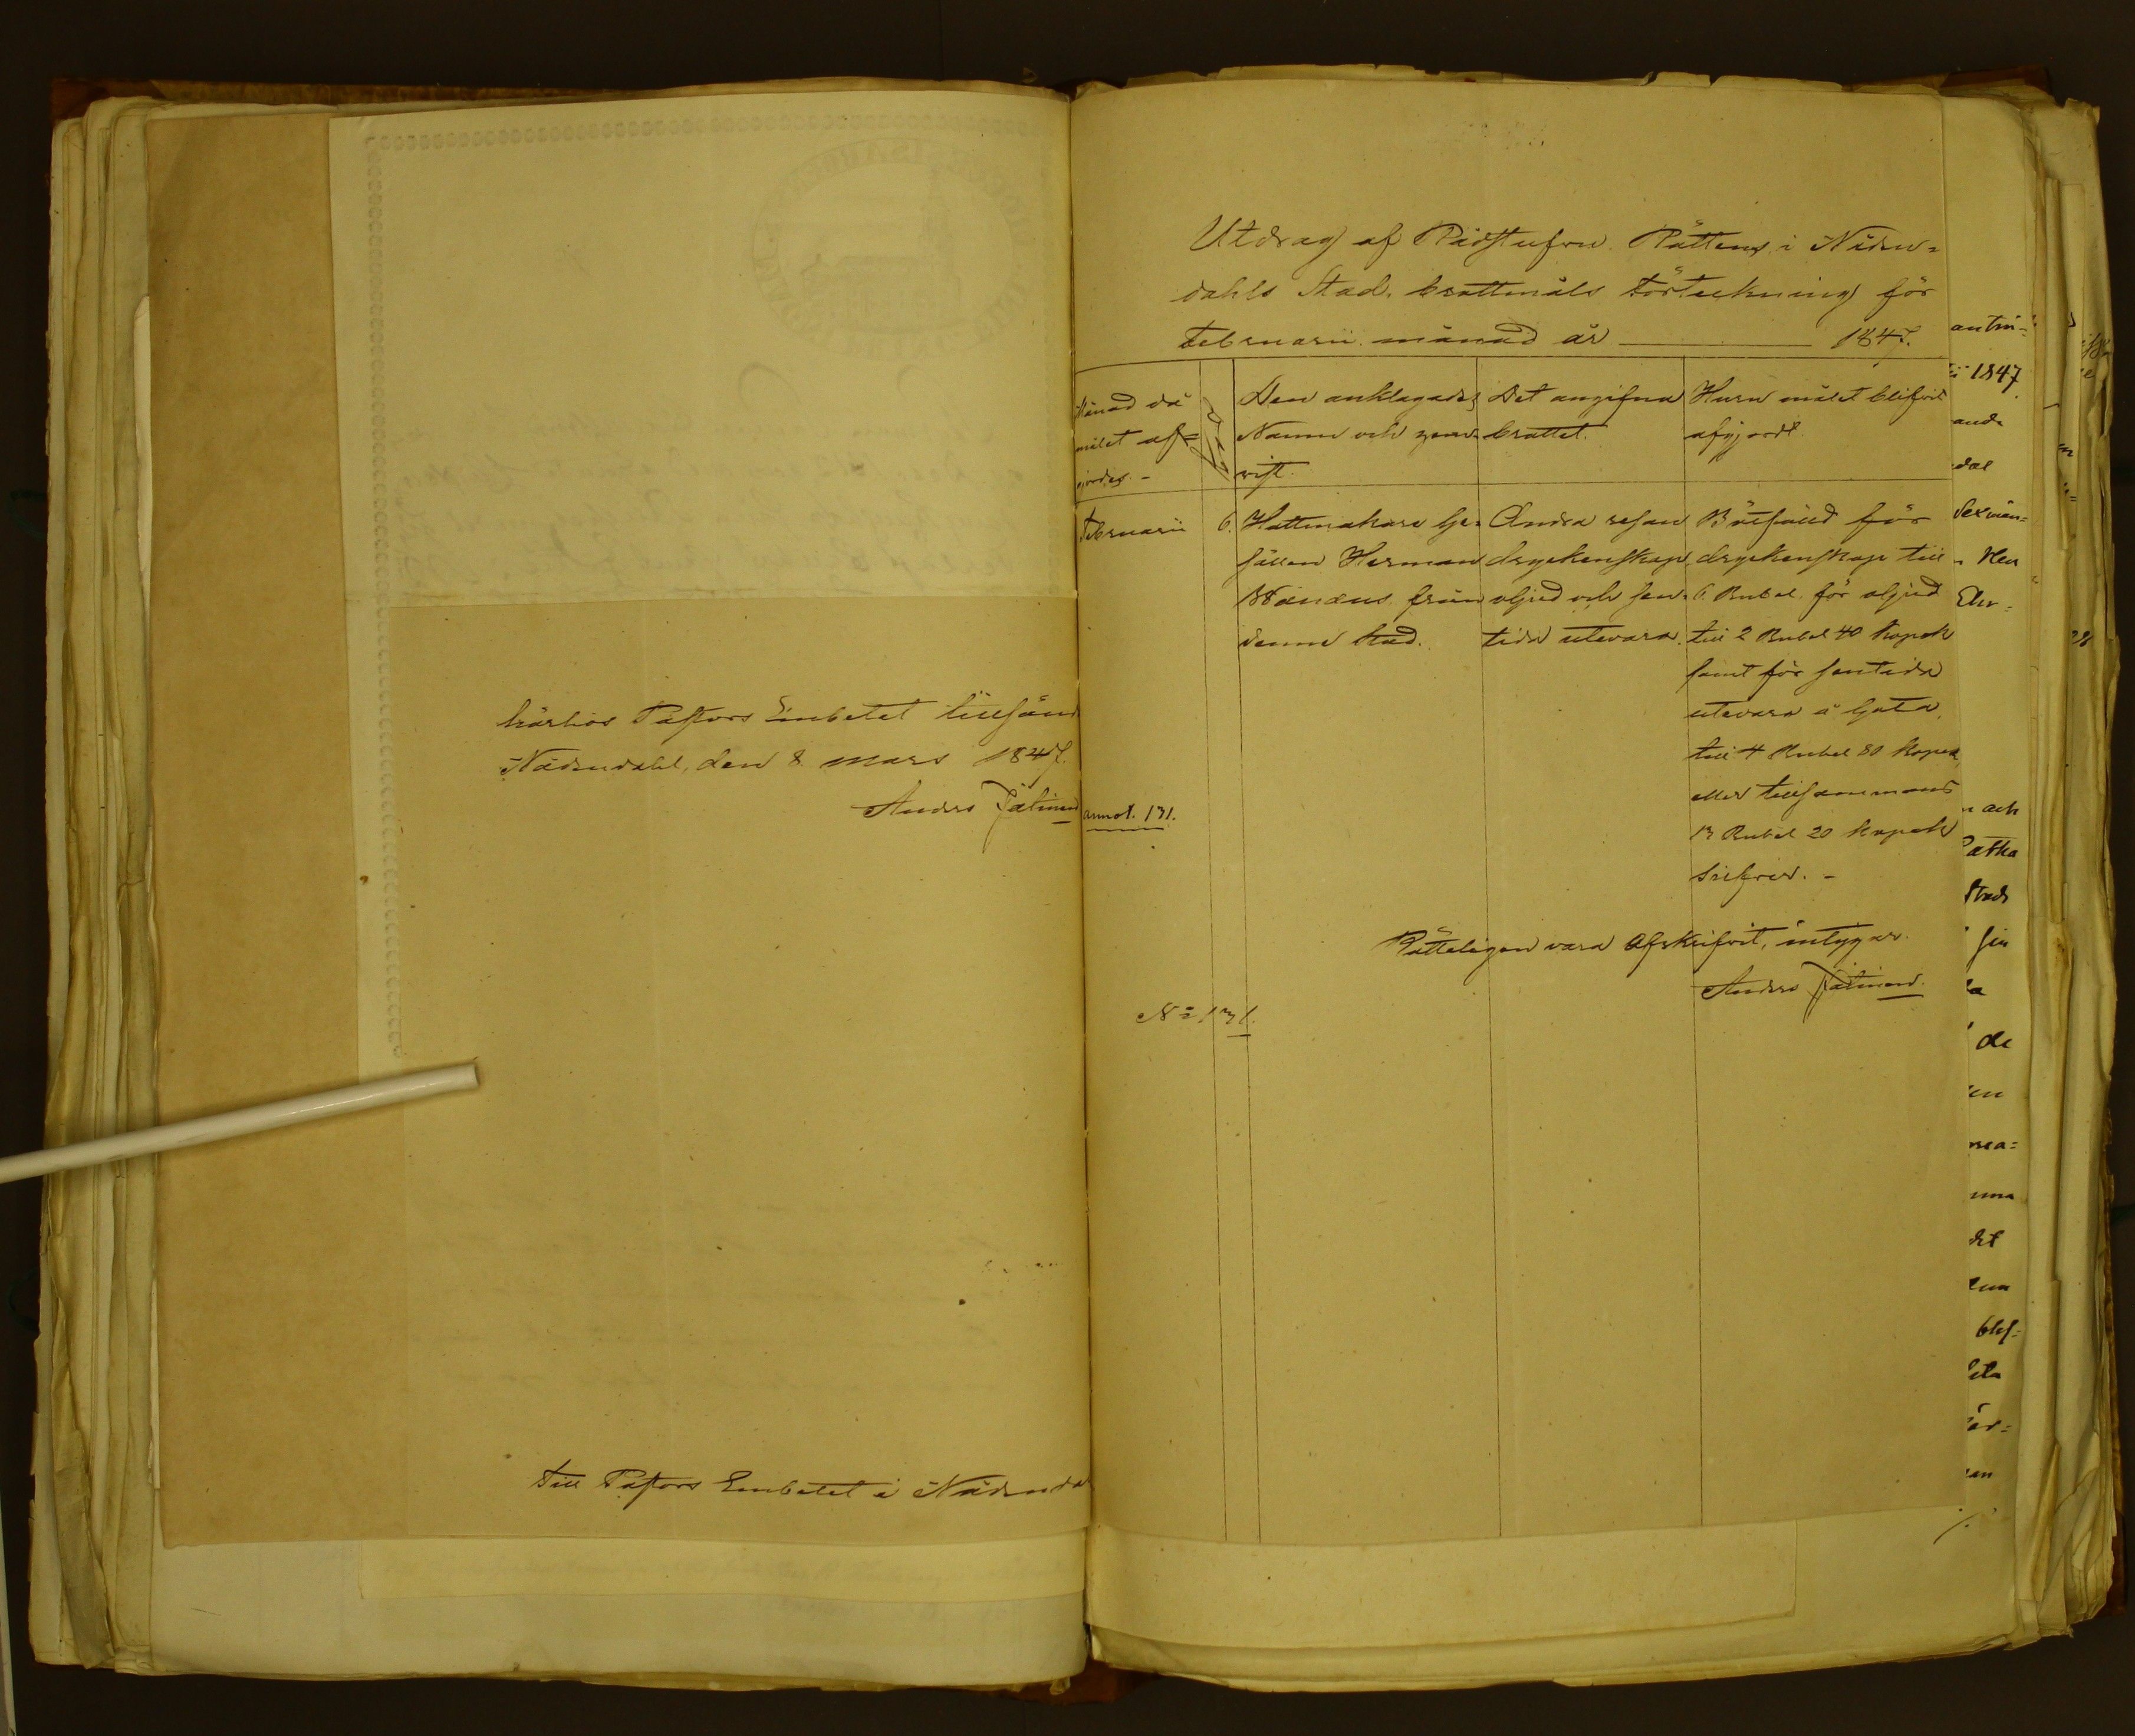 härhos Pastors Embetet tillsänd
Nådendahl, den 8. Mars 1847.
Anders
Till Pastors Embetet i Nådenda
Utdrag af Rådstufvu Rättens i Nåden-
dahls Stad, brottmåls Förteckning för
Februarii månad år 1847.
Månad då
målet af-
gjordes.-
Dag
Den anklagades
Namn och
vist.
Det angifna
brottet.
Huru målet blifvit
afgjordt
Februarii
6.
Hattmakare Ge-
sällen Herman
från
denne Stad.
Andra resan
dryckenskap,
oljud och sen-
tida utevara.
Bötfälld för
dryckenskap till
6. Rubel för oljud
till 2 Rubel 40 Kopek
samt för sentida
utevara å gata,
till 4 Rubel 80 Kopek,
eller tillsammans
13 Rubel 20 Kopek
Silfver.-
annot. 131.
Rätteligen vara Afskrifvit, intygar
Anders
No 131.
antin-
1847
ande
dal
Sexmän-
n och
Stads
sin
la
de
det